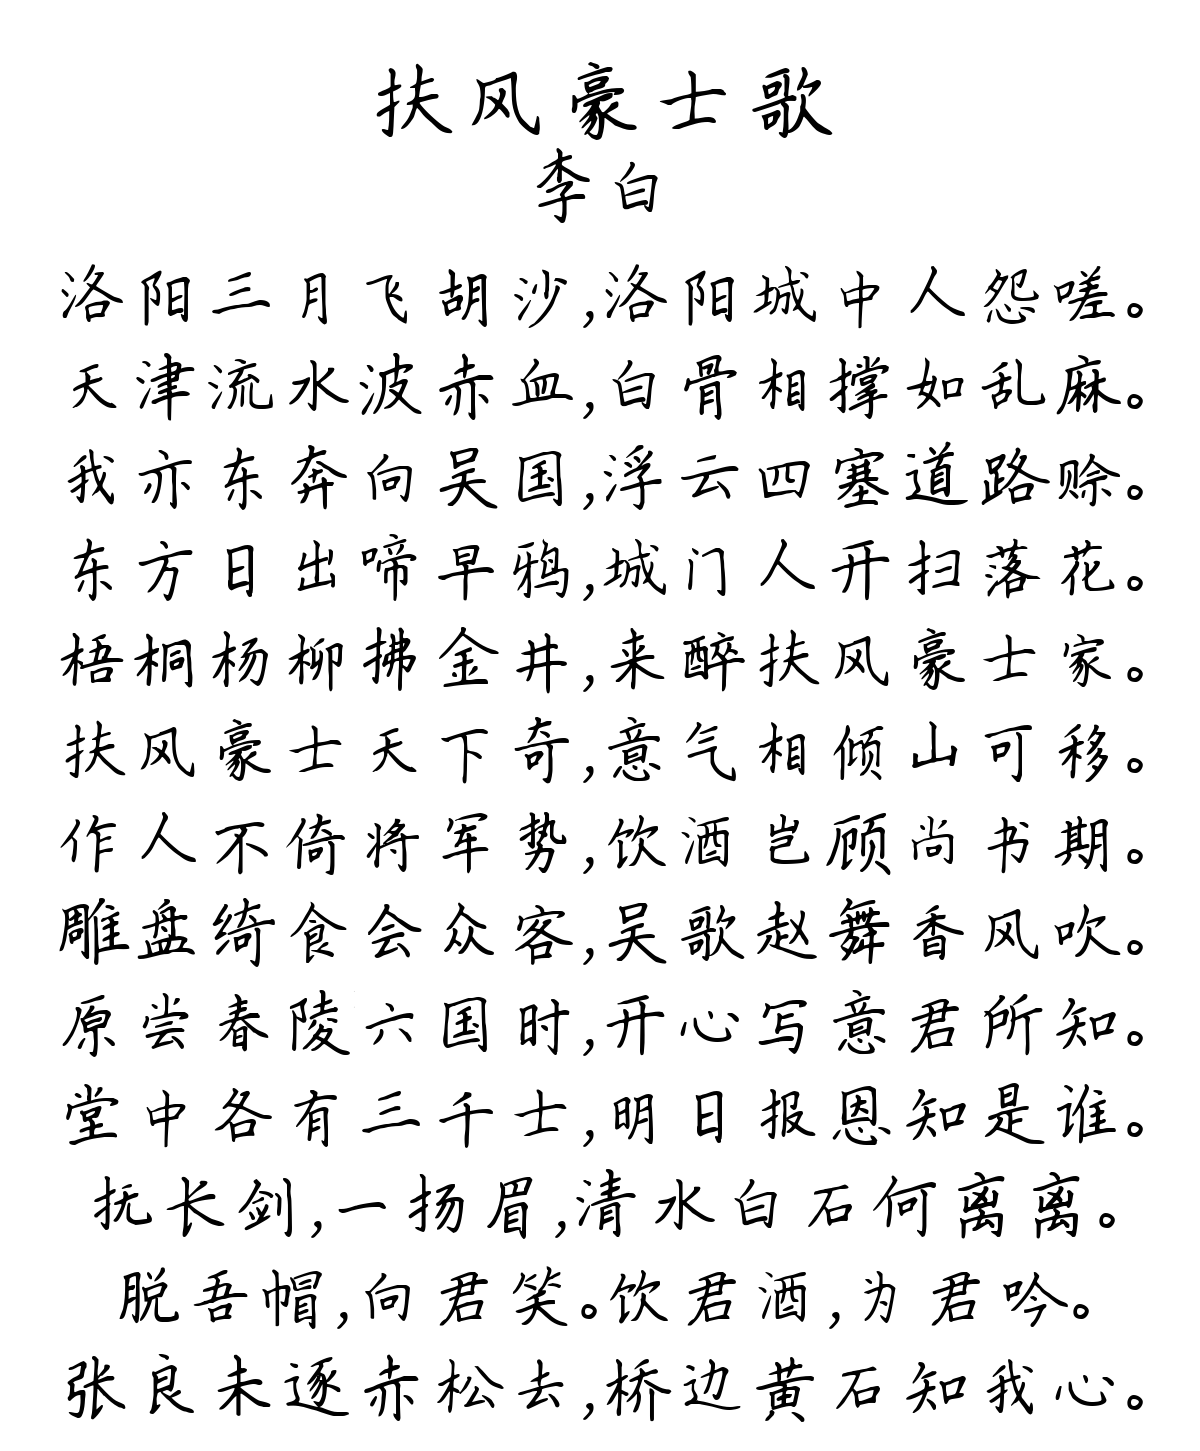 扶风豪士歌
李白
洛阳三月飞胡沙,洛阳城中人怨嗟。
天津流水波赤血,白骨相撑如乱麻。
我亦东奔向吴国,浮云四塞道路赊。
东方日出啼早鸦,城门人开扫落花。
梧桐杨柳拂金井,来醉扶风豪士家。
扶风豪士天下奇,意气相倾山可移。
作人不倚将军势,饮酒岂顾尚书期。
雕盘绮食会众客,吴歌赵舞香风吹。
原尝春陵六国时,开心写意君所知。
堂中各有三千士,明日报恩知是谁。
抚长剑,一扬眉,清水白石何离离。
脱吾帽,向君笑。饮君酒,为君吟。
张良未逐赤松去,桥边黄石知我心。